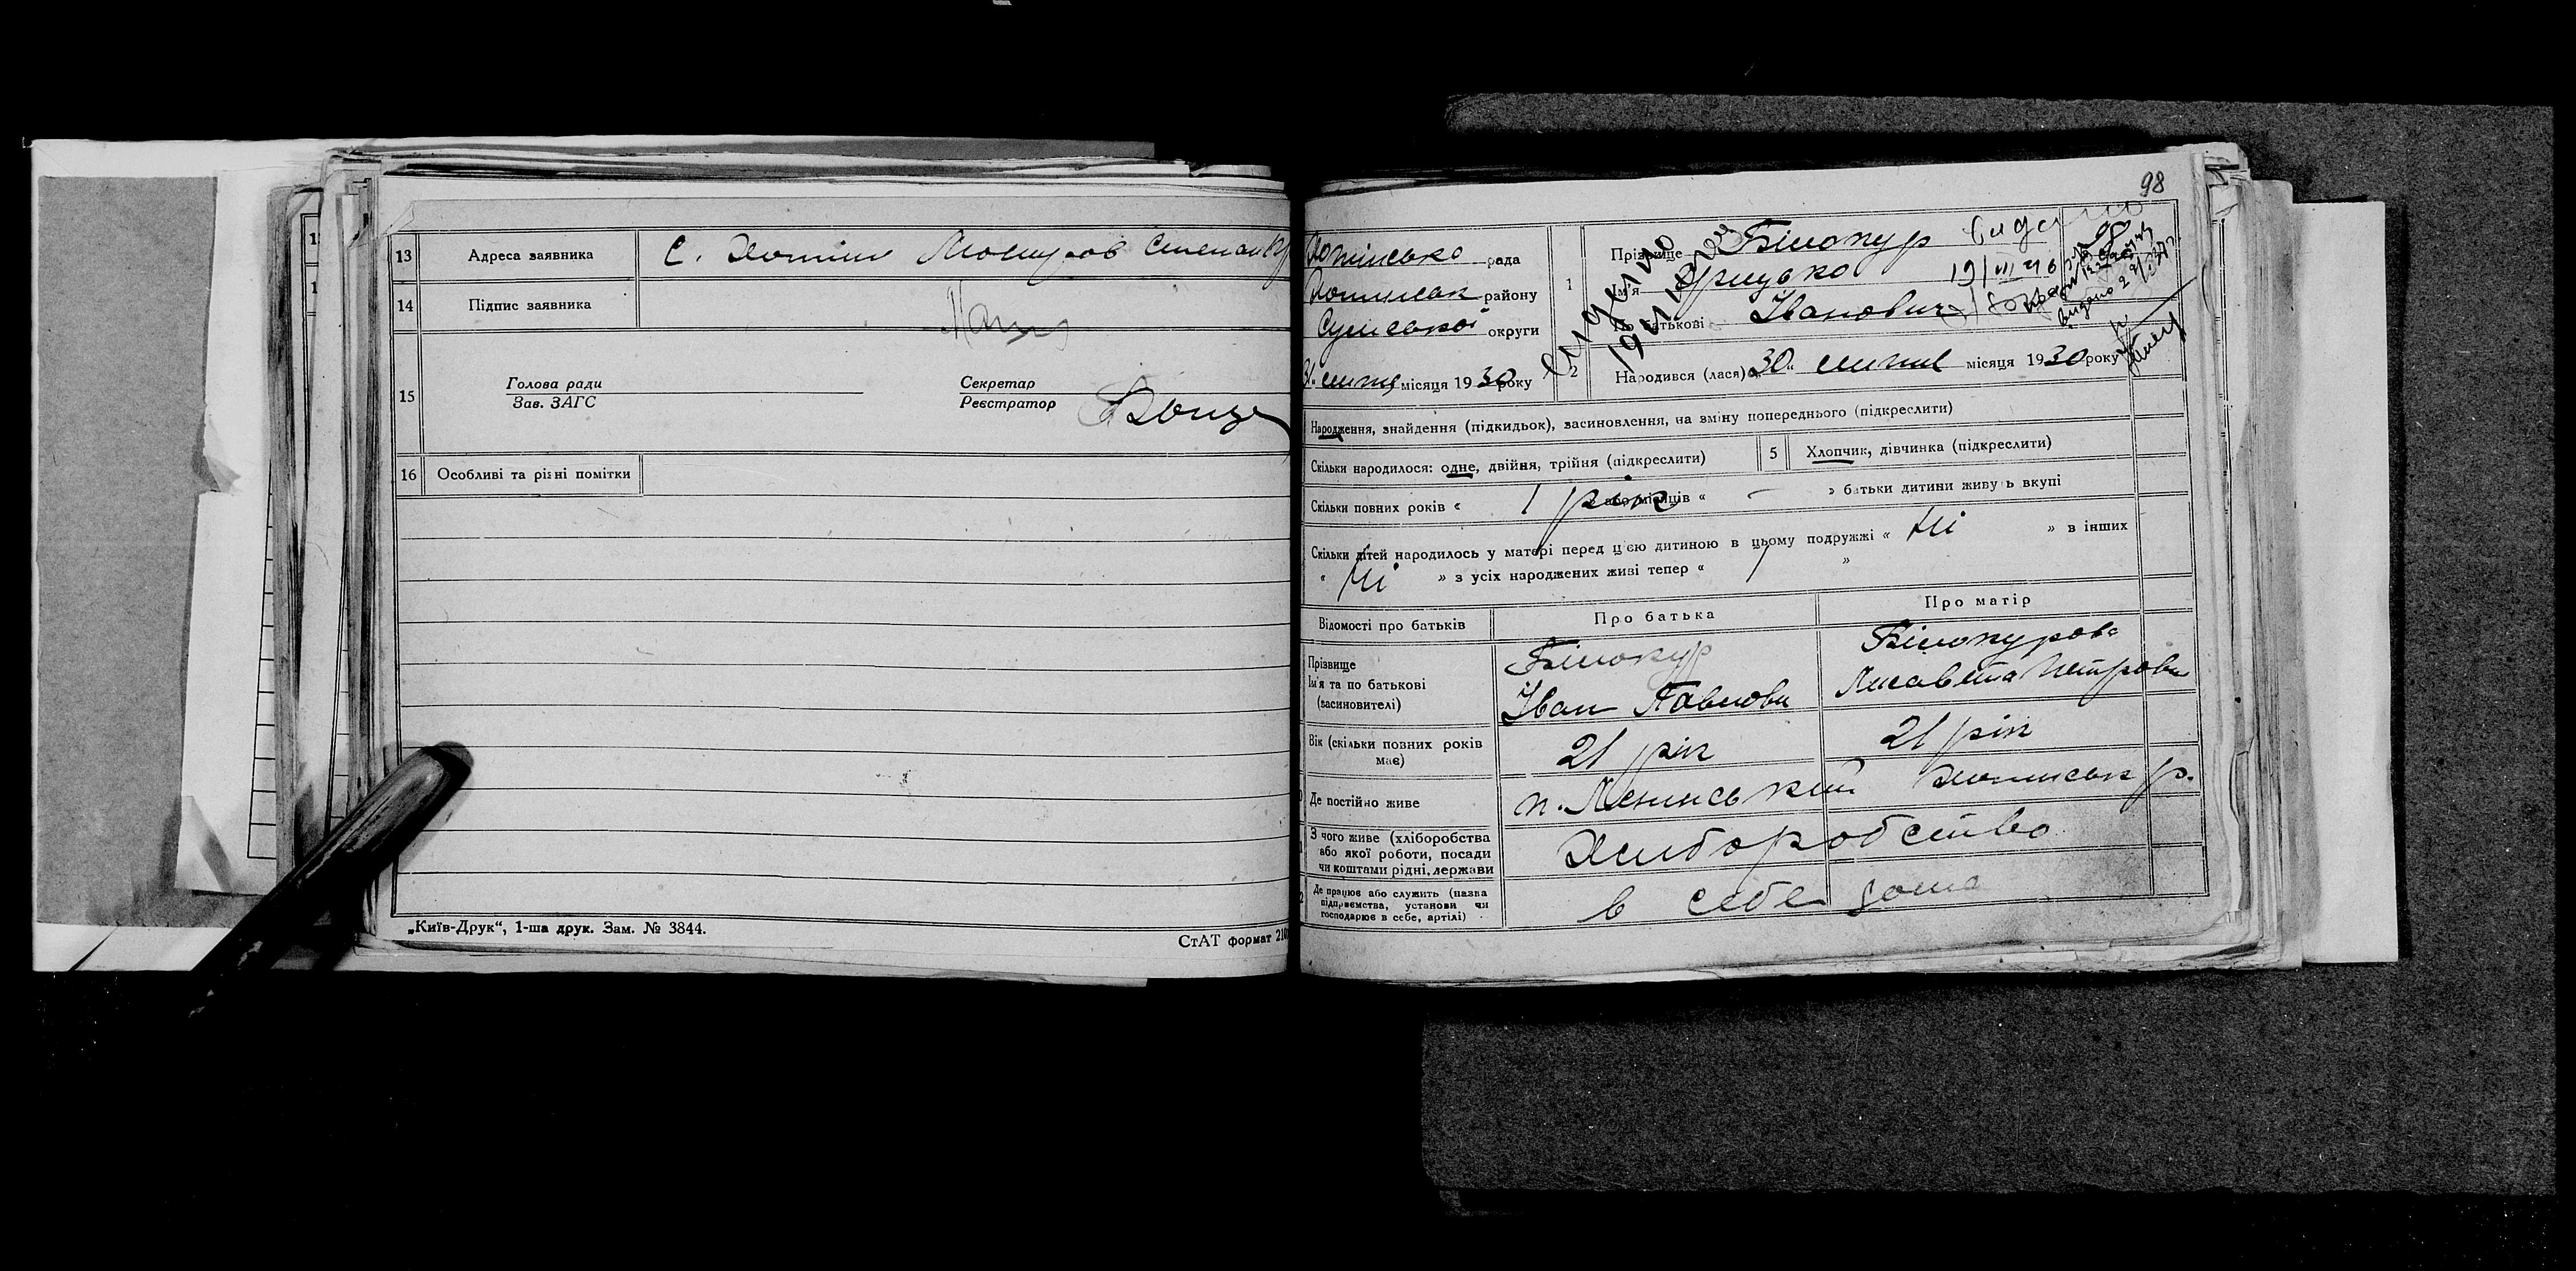 13 Адреса заявника С. Хотінь
14 Підпис заявника
15 Голова ради Зав. ЗАГС Секретар Реєстратор
16 Особливі та різні помітки
„Київ-Друк“, 1-ша друк. Зам. № 3844.
СтАТ формат 210
98
рада
району
Сумської округи
31 липня місяця 1930 року
1 Прізвище Білокур
Ім'я Грицько 19/III 46
По батькові Іванович
видано
2 Народився (лася) „30“ липня місяця 1930 року
Народження, знайдення (підкидьок), засиновлення, на зміну попереднього (підкреслити)
Скільки народилося: одне, двійня, трійня (підкреслити) 5 Хлопчик, дівчинка (підкреслити)
Скільки повних років « 1 рік » або місяців « — » батьки дитини живуть вкупі
Скільки дітей народилось у матері перед цією дитиною в цьому подружжі « Ні » в інших
« Ні » з усіх народжених живі тепер « 1 »
Відомості про батьків Про батька Про матір
Прізвище Білокур Білокурова
Ім'я та по батькові Іван Павлови Лисавета Петровн
(засиновителі)
Вік (скільки повних років має) 21 рік 21 рік
Де постійно живе п. Ленінський Хотинськ р.
З чого живе (хліборобства або якої роботи, посади чи коштами рідні, держави Хліборобство
Де працює або служить (назва підприємства, установи чи господарює в себе, артілі) в себе дома